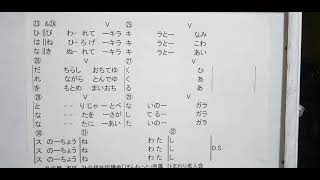 ㉓ &㉔ V ㉕ V
ひ びわーれて ーキラ キラとー なみ
は ねひーろげ ーキラ キラとー こわ
な きぬーれて ーキラ キラとー あい
㉖ V ㉗ V
だ ちらし おちてゆ く ひ
れ ながら とんでゆ く あ
を もとめ まいおち る あ
㉘ V ㉙ V
と ーーりじゃーとべ ないのー ガラ
な ーーたを ーさが してるー ガラ
な ーーたに ーあい たいのー ガラ
㉚ ㉛ ㉜
スのーちょう ね わた し
スのーちょう ね わた し D.S.
スのーちょう ね わた し